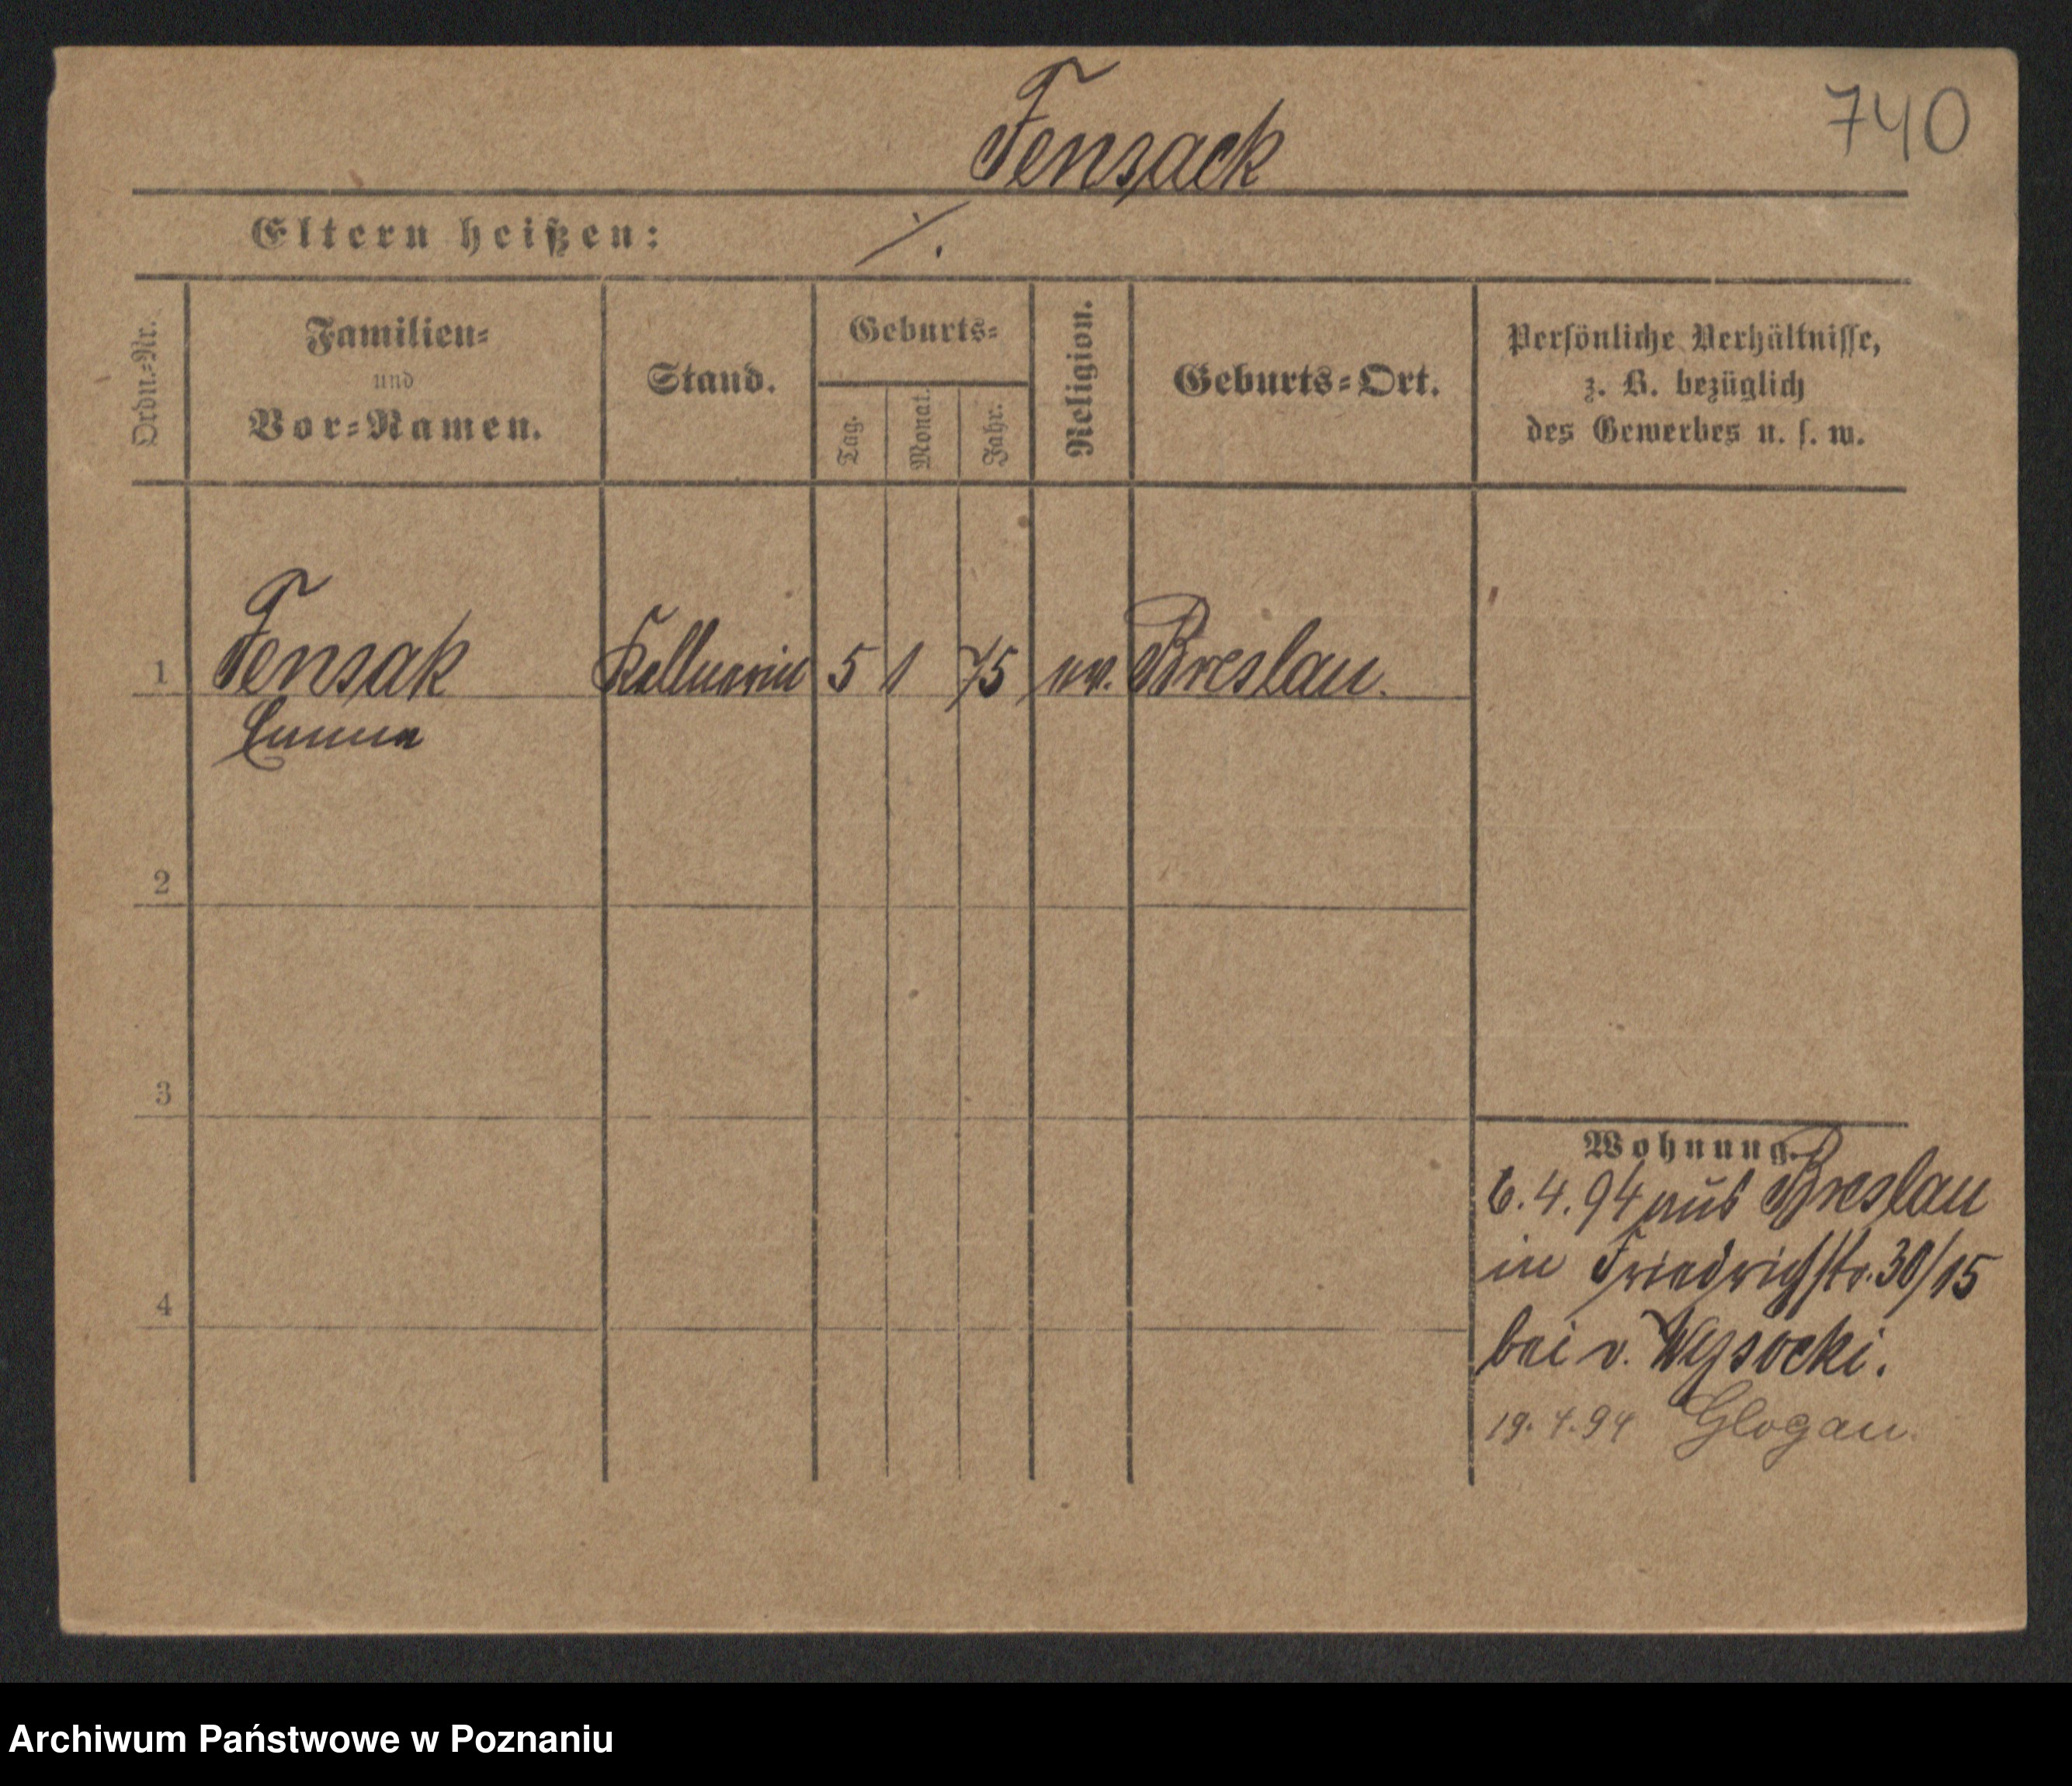 740
Fensack
Eltern heißen: ./.
Ordn.-Nr.
Familien-
und
Vor-Namen.
Stand.
Geburts-
Tag.
Monat.
Jahr.
Religion.
Geburts-Ort.
Persönliche Verhältnisse,
z. B. bezüglich
des Gewerbes u. s. w.
1 Fensak Kellnerin 5 1 75 ev. Breslau.
Emma
2
3
4
Wohnung.
6.4.94 aus Breslau
in Friedrichstr. 30/15
bei v. Wysocki.
19.4.94 Glogau.
Archiwum Państwowe w Poznaniu